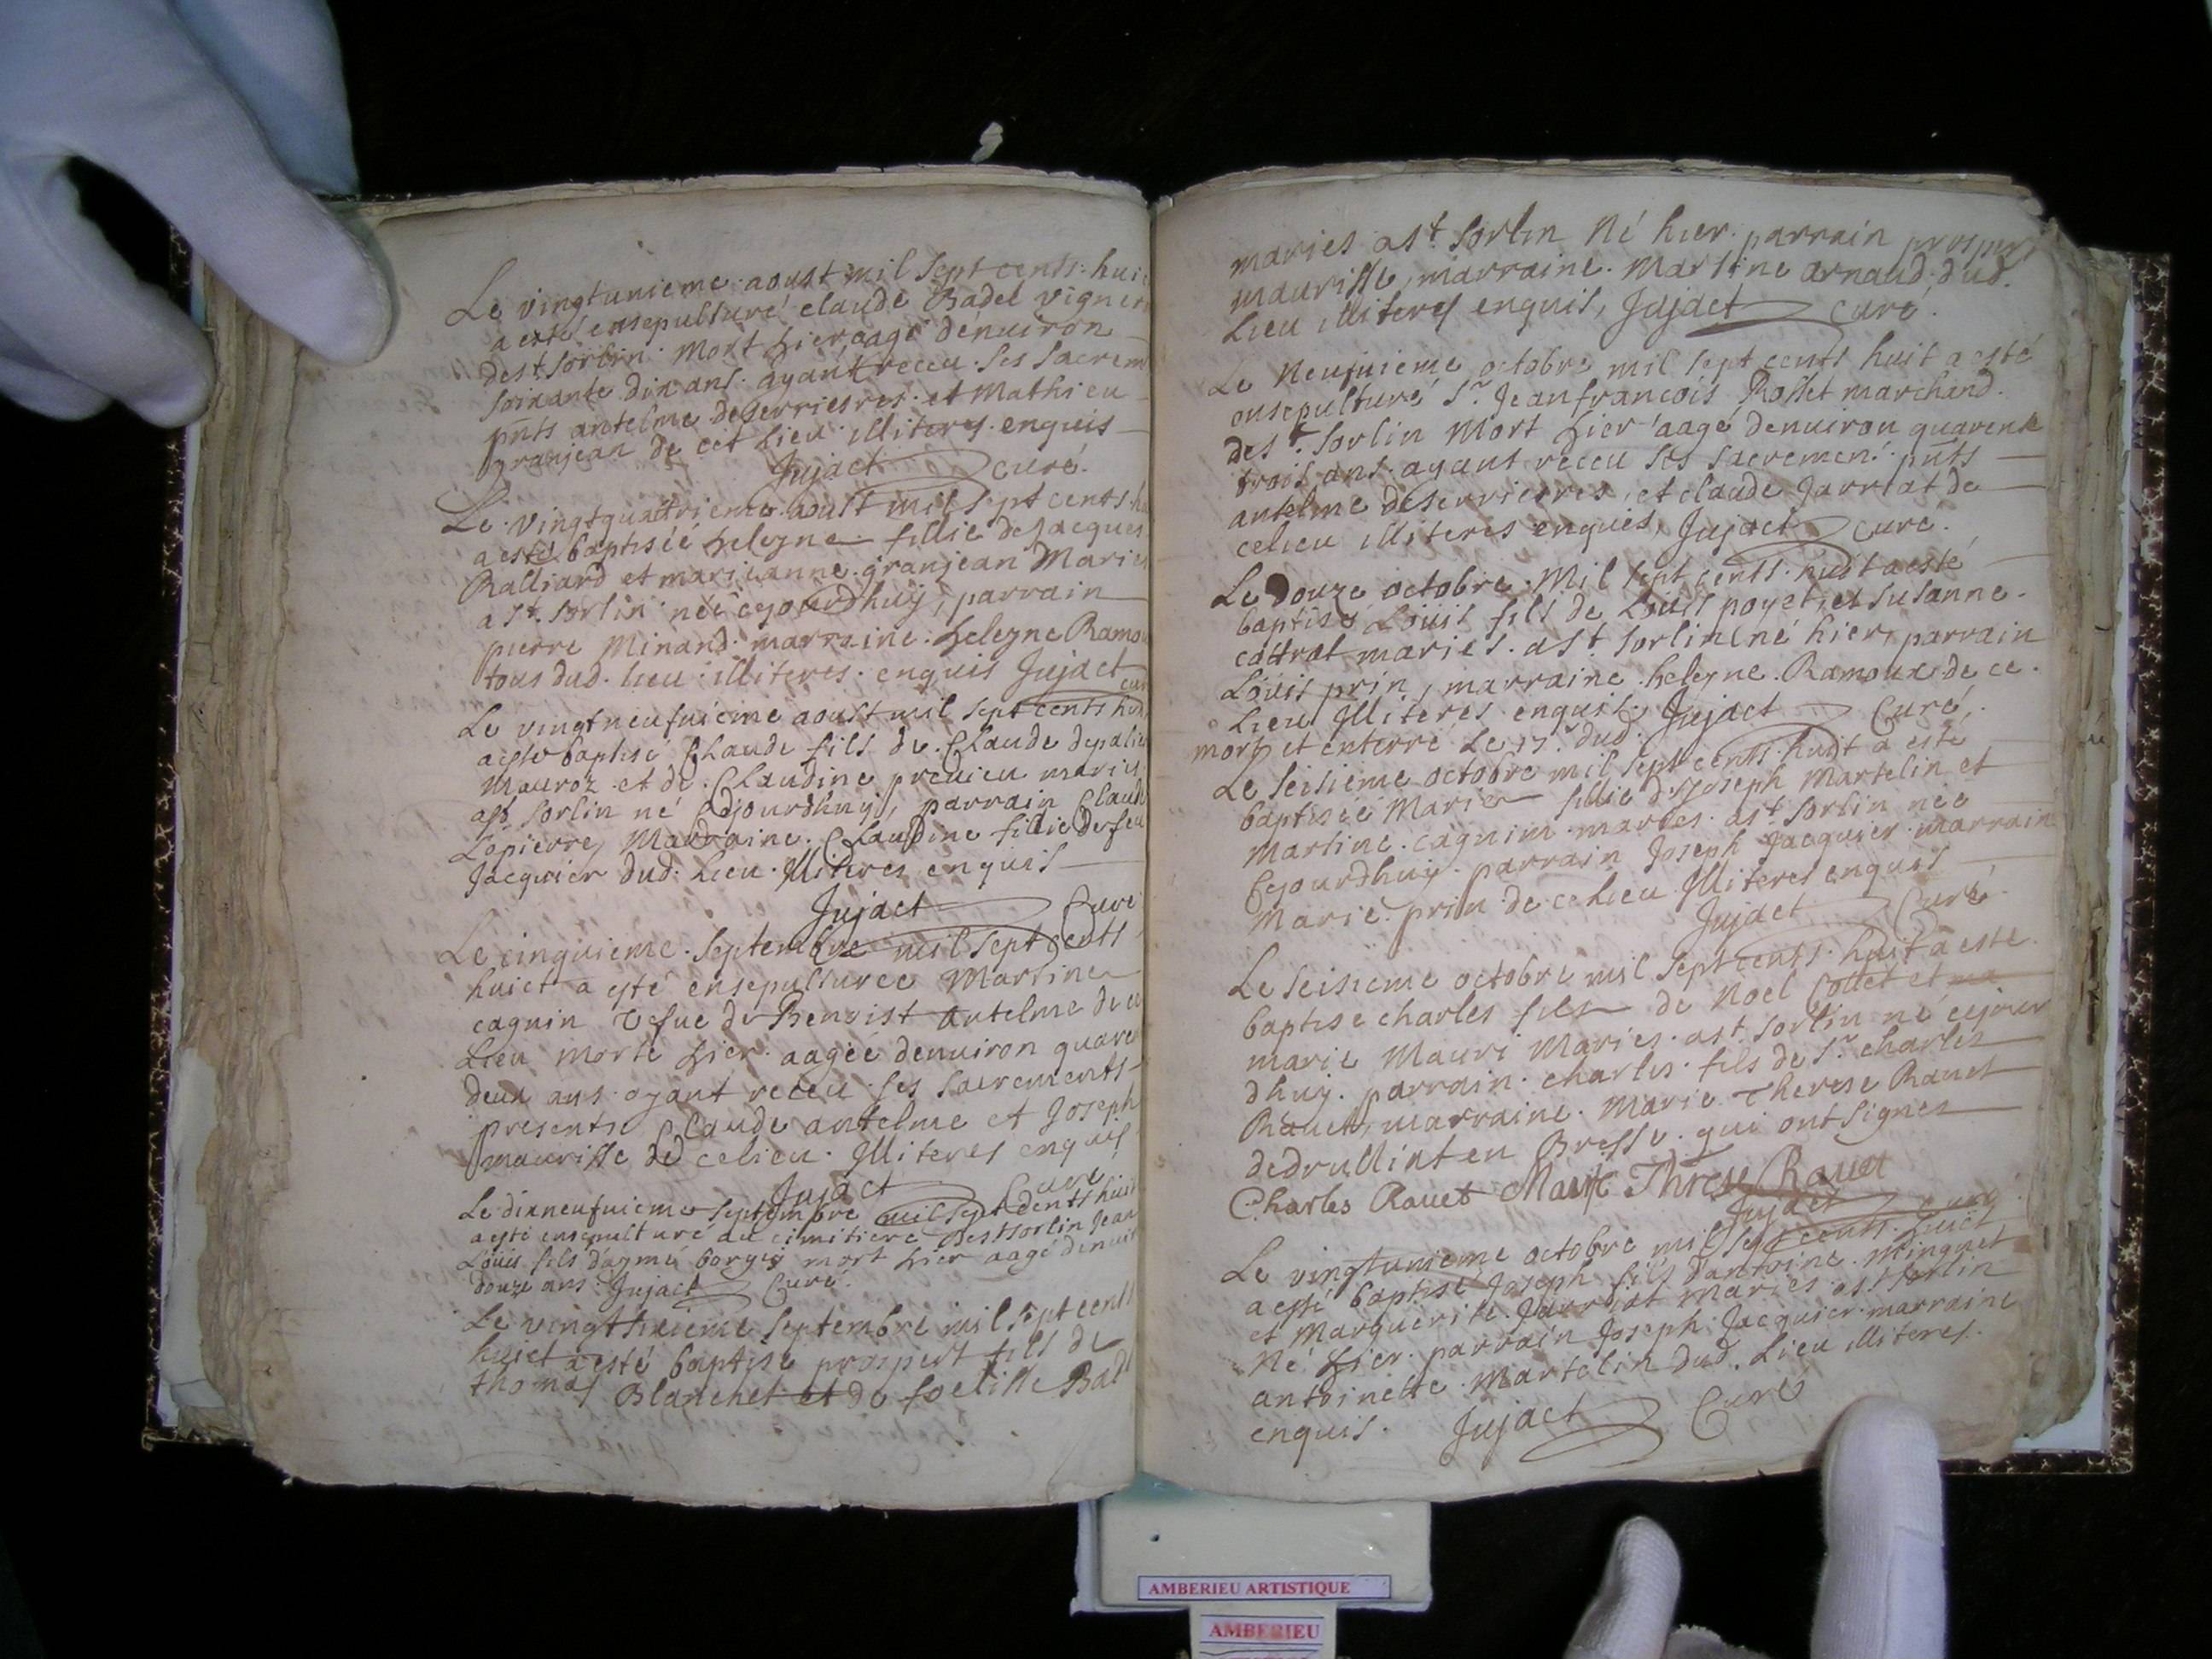 Le vingtunieme aoust mil sept cents hui
a esté ensepulturé claude Badel vigner
de st sorlin mort hier aagé denuiron
soixante dix ans ayant receu ses sacrem
pnts antelme deserrieres et Mathieu
granjean de cet lieu illiteres enquis
Jujact curé.
Le vingtquattrieme aoust mil sept cents hu
a esté baptisée heleyne fillie de Jacques
Ralliard et marieanne granjean Maries
a st sorlin née cejourdhuy, parrain
pierre Minand marraine heleyne Ramou
tous dud. lieu illiteres enquis Jujact
cur
Le vingt neufuieme aoust mil sept cents hui
a esté baptisé Claude fils de Claude
Mauroz et de Claudine preuieu maries
a st sorlin né cejourdhuy, parrain Claude
Lapierre, Marraine Claudine fillie de feu
Jacquier dud. Lieu Illiteres enquis
Jujact Curé
Le cinquieme septembre mil sept cents
huict a esté ensepulturee Martine
caguin vefue de Benoist antelme de ce
Lieu morte hier aagée denuiron quaren
deux ans ayant receu ses sacrements
presents Claude antelme et Joseph
maurisse de celieu Illiteres enquis
Jujact Curé
Le dixneufuieme septembre mil sept cents huit
a esté ensepulturé au cimitiere de st sorlin Jean
Louis fils daymé borgey mort hier aagé denuir
douze ans Jujact Curé.
Le vingthuieme septembre mil sept cents
huict a esté baptise prospert fils de
thomas Blanchet et de foelisse Bad
maries a st sorlin Né hier parrain prosper
maurisse, marraine Martine arnaud dud.
Lieu illiteres enquis, Jujact curé.
Le Neufuieme octobre mil sept cents huit a esté
ensepulturé Sr. Jeanfrancois Rollet marchand
de st. sorlin Mort hier aagé denuiron quarente
trois ans ayant receu ses sacremens pnts
antelme deserrieres, et claude Jarriat de
celieu illiteres enquis, Jujact curé.
Le douze octobre Mil sept cents huit a esté
baptisé Louis fils de Louis poyet, et susanne
cattrat maries a st sorlin né hier, parrain
Louis prin, marraine heleyne Ramoux de ce
Lieu Illiteres enquis. Jujact Curé,
mort et enterré le 17e dud.
Le seisieme octobre mil sept cents huit a esté
baptisée Marie fillie de Joseph Martelin et
Martine caguin maries a st sorlin née
Cejourdhuy parrain Joseph Jacquier marraine
Marie prin de celieu Illiteres enquis
Jujact Curé
Le seisieme octobre mil sept cents huit a este
baptise charles fils de Noel Collet et ma
marie Mauri Maries a st sorlin né cejour
dhuy. parrain charles fils de Sr. charles
Rauet, marraine Marie Therese Rauet
de drullint en Bresse qui ont signes
Charles Rauet Marie Threse Rauet
Jujact Curé
Le vingtunieme octobre mil sept cents huict
a esté baptisé Joseph fils dantoine Minguet
et Marguerite Jarriat maries a st sorlin
Né hier parrain Joseph Jacquier marraine
antoinette Martelin dud. Lieu illiteres
enquis. Jujact Curé
AMBERIEU ARTISTIQUE
AMBERIEU